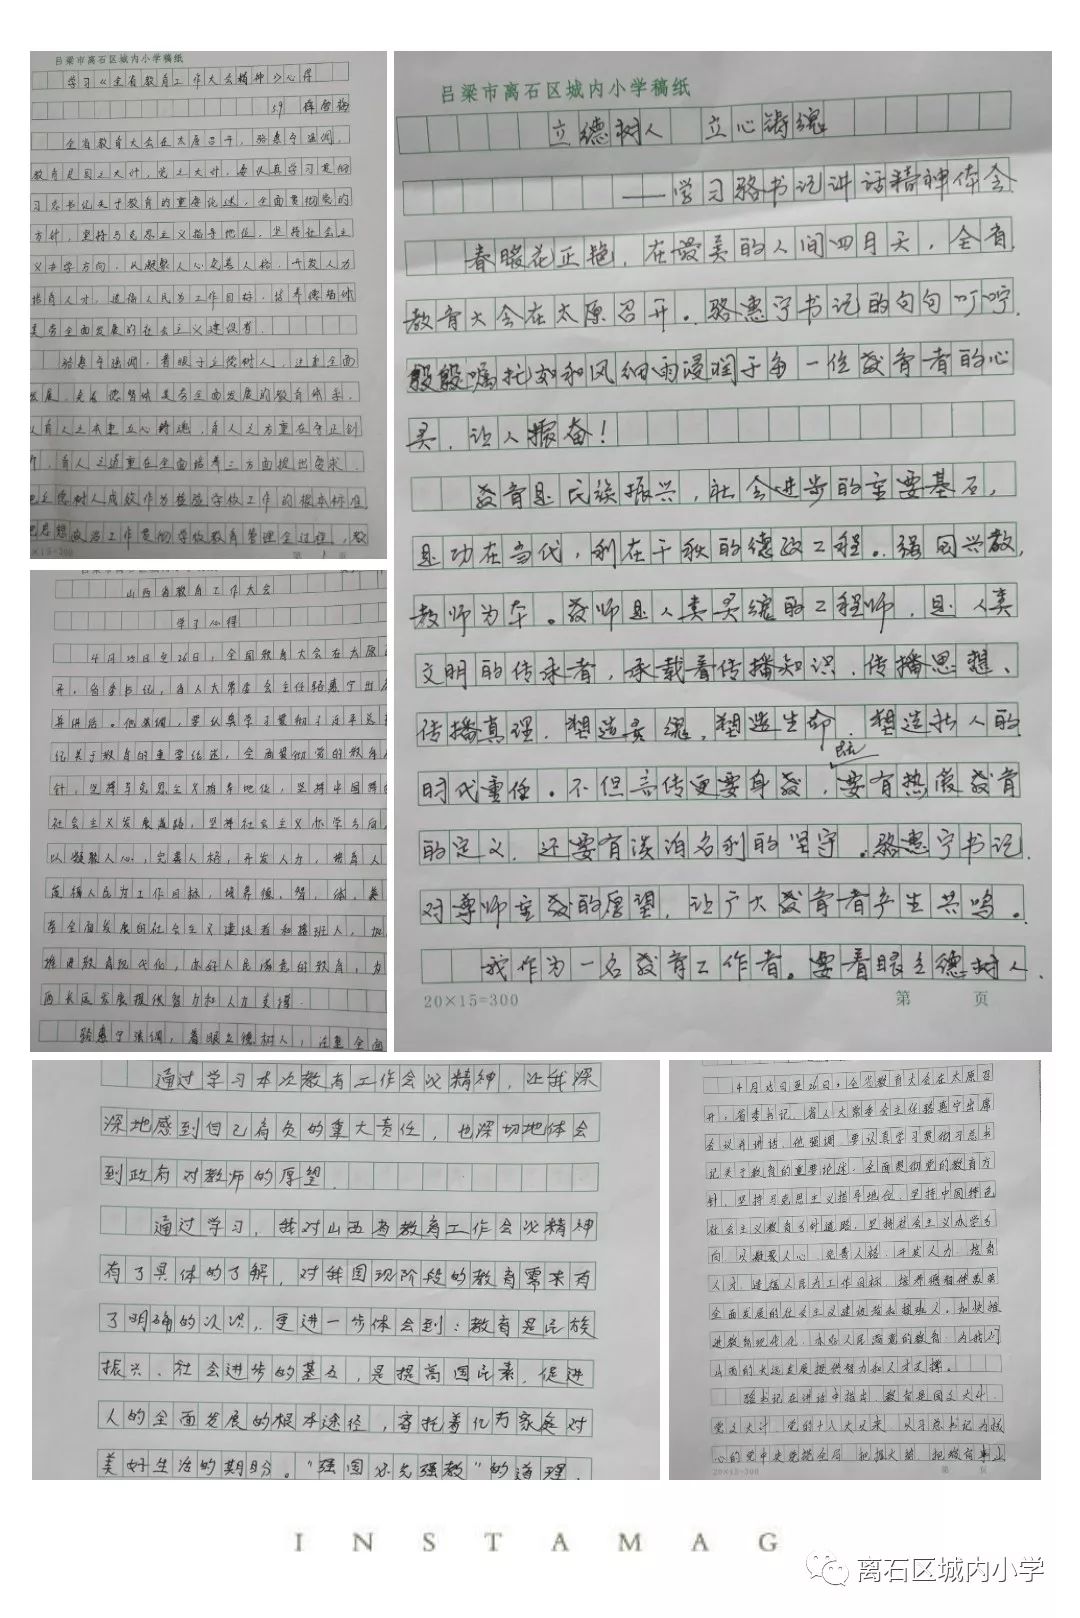 吕梁市离石区城内小学稿纸
学习《全省教育工作大会精神》心得
59 薛雪梅
全省教育大会在太原召开，骆惠宁强调，
教育是国之大计，党之大计，要认真学习贯彻
习总书记关于教育的重要论述，全面贯彻党的
方针，坚持马克思主义指导地位，坚持社会主
义办学方向，以凝聚人心完善人格，开发人力
培育人才，造福人民为工作目标，培养德智体
美劳全面发展的社会主义建设者
骆惠宁强调，着眼于立德树人，注重全面
发展，完善德智体美劳全面发展的教育体系，
从育人之本重立心铸魂，育人之方重在守正创
新，育人之道重在全面培养三方面提出要求，
把立德树人成效作为检验学校工作的根本标准
把思想政治工作贯彻学校教育管理全过程，教
×15=300 第 1 页
吕梁市离石区城内小学稿纸
立德树人 立心铸魂
——学习骆书记讲话精神体会
春暖花正艳，在最美的人间四月天，全省
教育大会在太原召开。骆惠宁书记的句句叮咛，
殷殷嘱托如和风细雨浸润于每一位教育者的心
灵，让人振奋！
教育是民族振兴，社会进步的重要基石，
是功在当代，利在千秋的德政工程。强国兴教，
教师为本。教师是人类灵魂的工程师，是人类
文明的传承者，承载着传播知识、传播思想、
传播真理，塑造灵魂，塑造生命，塑造新人的
时代重任。不但言传更要身教，既要有热爱教育
的定义，还要有淡泊名利的坚守。骆惠宁书记
对尊师重教的愿望，让广大教育者产生共鸣。
我作为一名教育工作者。要着眼立德树人，
20×15=300 第 页
山西省教育工作大会
学习心得
4月25日至26日，全国教育大会在太原召
开，省委书记，省人大常委会主任骆惠宁出席
并讲话。他强调，要认真学习贯彻习近平总书
记关于教育的重要论述，全面贯彻党的教育方
针，坚持马克思主义指导地位，坚持中国特色
社会主义发展道路，坚持社会主义办学方向，
以凝聚人心，完善人格，开发人力，培育人
造福人民为工作目标，培养德，智，体，美
劳全面发展的社会主义建设者和接班人，加
推进教育现代化，办好人民满意的教育，为
西长远发展提供智力和人力支撑.
骆惠宁强调，着眼立德树人，注重全面
通过学习本次教育工作会议精神，让我深
深地感到自己肩负的重大责任，也深切地体会
到政府对教师的厚望.
通过学习，我对山西省教育工作会议精神
有了具体的了解，对我国现阶段的教育需求有
了明确的认识，更进一步体会到：教育是民族
振兴、社会进步的基石，是提高国民素，促进
人的全面发展的根本途径，寄托着亿万家庭对
美好生活的期盼。“强国必先强教”的道理，
4月25日至26日，全省教育大会在太原召
开，省委书记、省人大常委会主任骆惠宁出席
会议并讲话，他强调，要认真学习贯彻习总书
记关于教育的重要论述，全面贯彻党的教育方
针，坚持马克思主义指导地位，坚持中国特色
社会主义教育方针道路，坚持社会主义办学方
向，以凝聚人心、完善人格、开发人力、培育
人才、造福人民为工作目标，培养德智体美劳
全面发展的社会主义建设者和接班人，加快推
进教育现代化、办好人民满意的教育，为我们
山西的长远发展提供智力和人才支撑。
骆书记在讲话中指出，教育是国之大计、
党之大计，党的十八大以来，以习总书记为核
心的党中央党揽全局、把握大势、把教育事业
20×15=300 第 页
INSTAMAG
离石区城内小学